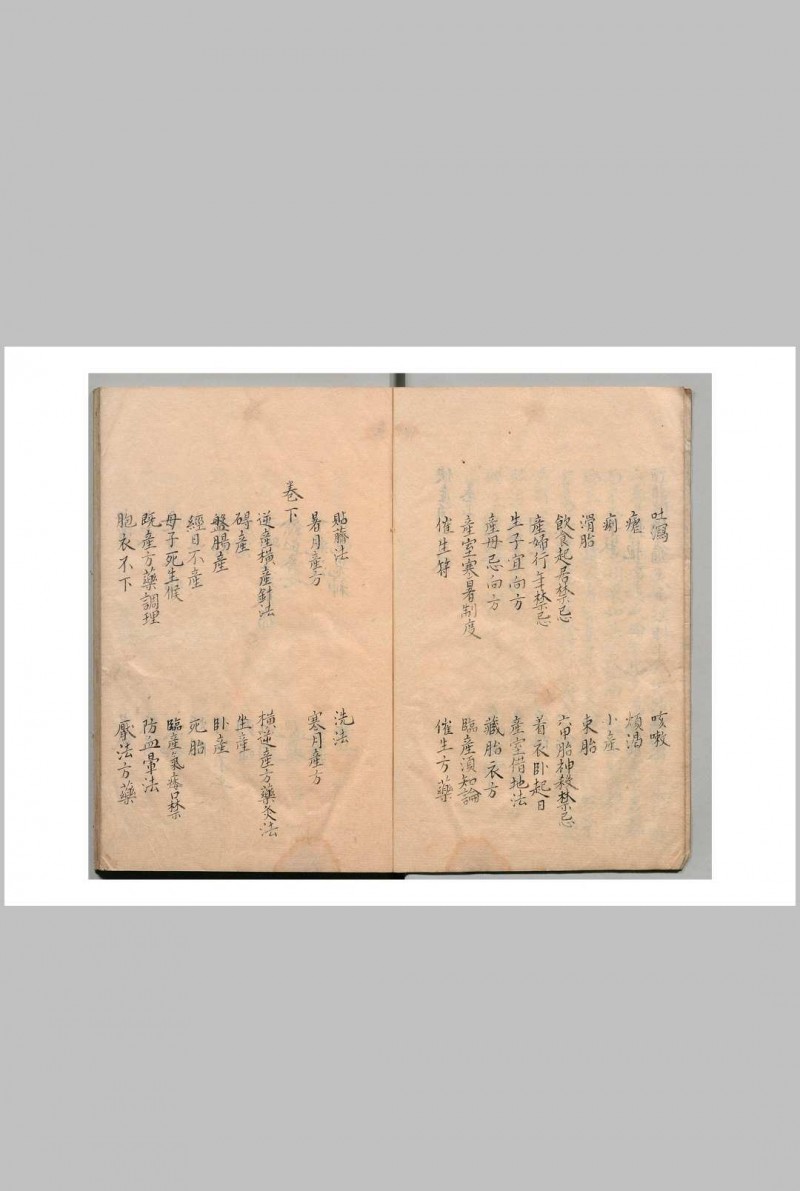 吐瀉 咳嗽
瘧 煩渴
痢 小產
滑胎 束胎
飲食起居禁忌 六甲胎神殺禁忌
產婦行年禁忌 着衣卧起日
生子宜向方 產室借地法
產母忌向方 藏胎衣方
產室寒暑制度 臨產須知論
催生符 催生方藥
貼藥法 洗法
暑月產方 寒月產方
卷下
逆產橫產針法 橫逆產方藥灸法
碍產 坐產
盤腸產 卧產
經日不產 死胎
母子死生候 臨產氣痿口禁
既產方藥調理 防血暈法
胞衣不下 壓法方藥